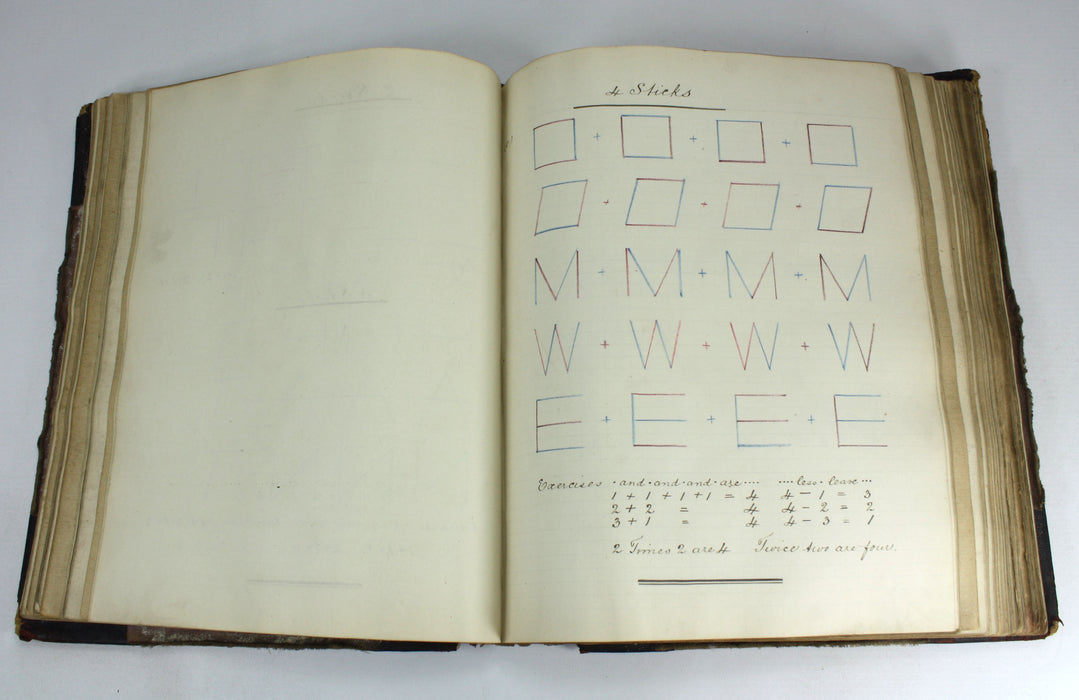 4 Sticks
+ + +
+ + +
M + M + M + M
W + W + W + W
E + E + E + E
Exercises · and · and · and · are ···· ···· less · leave ···
1 + 1 + 1 + 1 = 4 4 - 1 = 3
2 + 2 = 4 4 - 2 = 2
3 + 1 = 4 4 - 3 = 1
2 Times 2 are 4 Twice two are four.